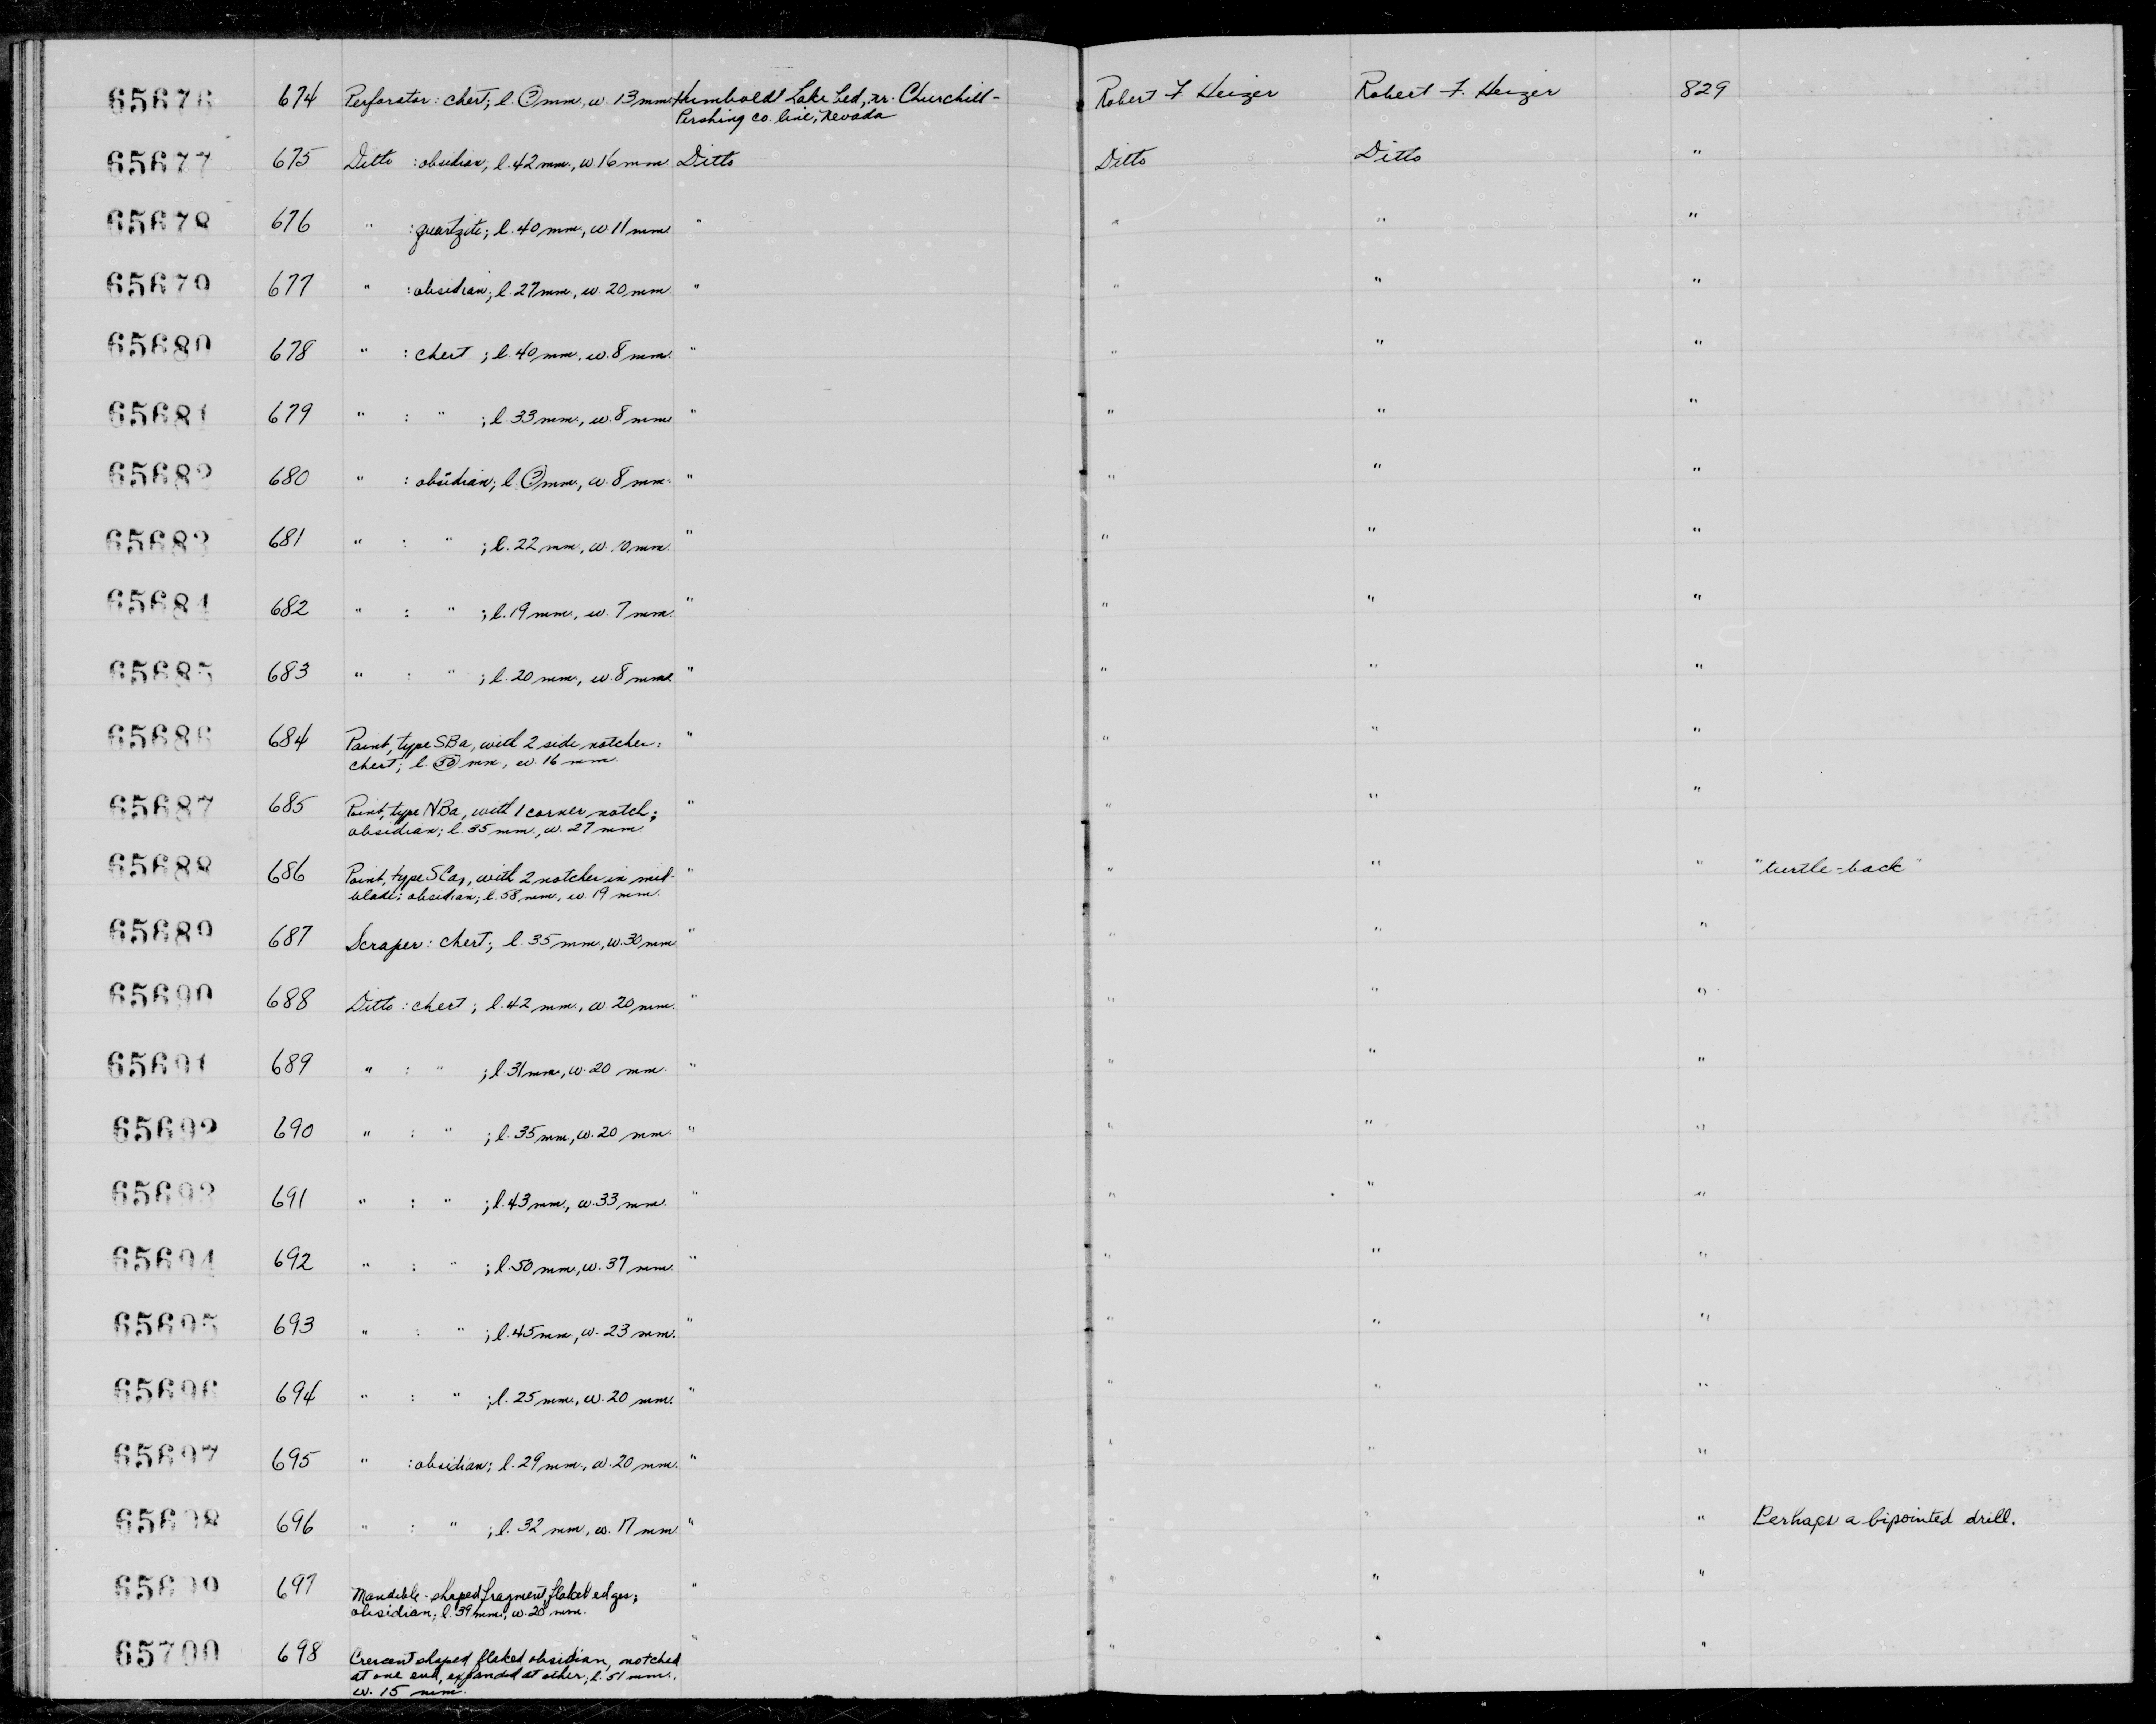 65676 674 Perforator: chert; l. (?) mm, w. 13 mm. Humboldt Lake bed, nr. Churchill- Robert F. Heizer Robert F. Heizer 829
Pershing co. line, Nevada
65677 675 Ditto : obsidian; l. 42 mm., w. 16 mm. Ditto Ditto Ditto "
65678 676 " : quartzite; l. 40 mm., w. 11 mm. " " " "
65679 677 " : obsidian; l. 27 mm., w. 20 mm. " " " "
65680 678 " : chert ; l. 40 mm., w. 8 mm. " " " "
65681 679 " : " ; l. 33 mm., w. 8 mm. " " " "
65682 680 " : obsidian; l. (?) mm., w. 8 mm. " " " "
65683 681 " : " ; l. 22 mm., w. 10 mm. " " " "
65684 682 " : " ; l. 19 mm., w. 7 mm. " " " "
65685 683 " : " ; l. 20 mm., w. 8 mm. " " " "
65686 684 Point, type SBa, with 2 side notches: " " " "
chert; l. (50) mm., w. 16 mm.
65687 685 Point, type NBa, with 1 corner notch; " " " "
obsidian; l. 35 mm., w. 27 mm.
65688 686 Point, type SCa1, with 2 notches in mid- " " " " "turtle-back"
blade: obsidian; l. 58 mm., w. 19 mm.
65689 687 Scraper: chert; l. 35 mm., w. 30 mm " " " "
65690 688 Ditto : chert ; l. 42 mm., w. 20 mm. " " " "
65691 689 " : " ; l. 31 mm., w. 20 mm. " " " "
65692 690 " : " ; l. 35 mm., w. 20 mm. " " " "
65693 691 " : " ; l. 43 mm., w. 33 mm. " " " "
65694 692 " : " ; l. 50 mm., w. 37 mm. " " " "
65695 693 " : " ; l. 45 mm., w. 23 mm. " " " "
65696 694 " : " ; l. 25 mm., w. 20 mm. " " " "
65697 695 " : obsidian; l. 29 mm., w. 20 mm. " " " "
65698 696 " : " ; l. 32 mm., w. 17 mm. " " " " Perhaps a bipointed drill.
65699 697 Mandible-shaped fragment, flaked edges; " " "
obsidian; l. 39 mm., w. 25 mm.
65700 698 Crescent shaped flaked obsidian, notched " " " "
at one end, expanded at other; l. 51 mm.,
w. 15 mm.